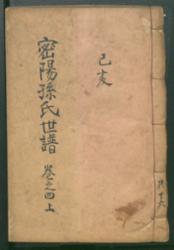 己亥
密陽孫氏世譜
卷之四上
共十六